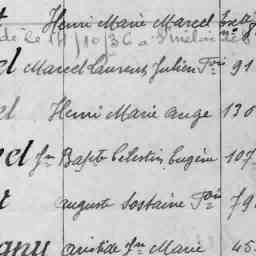 Henri Marie Marcel
dé le 14/10/36 a St
Marcel Laurent Julien Fois 91
el Henri Marie Ange 130
el Jn Bapte Celestin Eugène 107
Auguste Sostaine Fois 79
gny Aristide Jn Marie 45